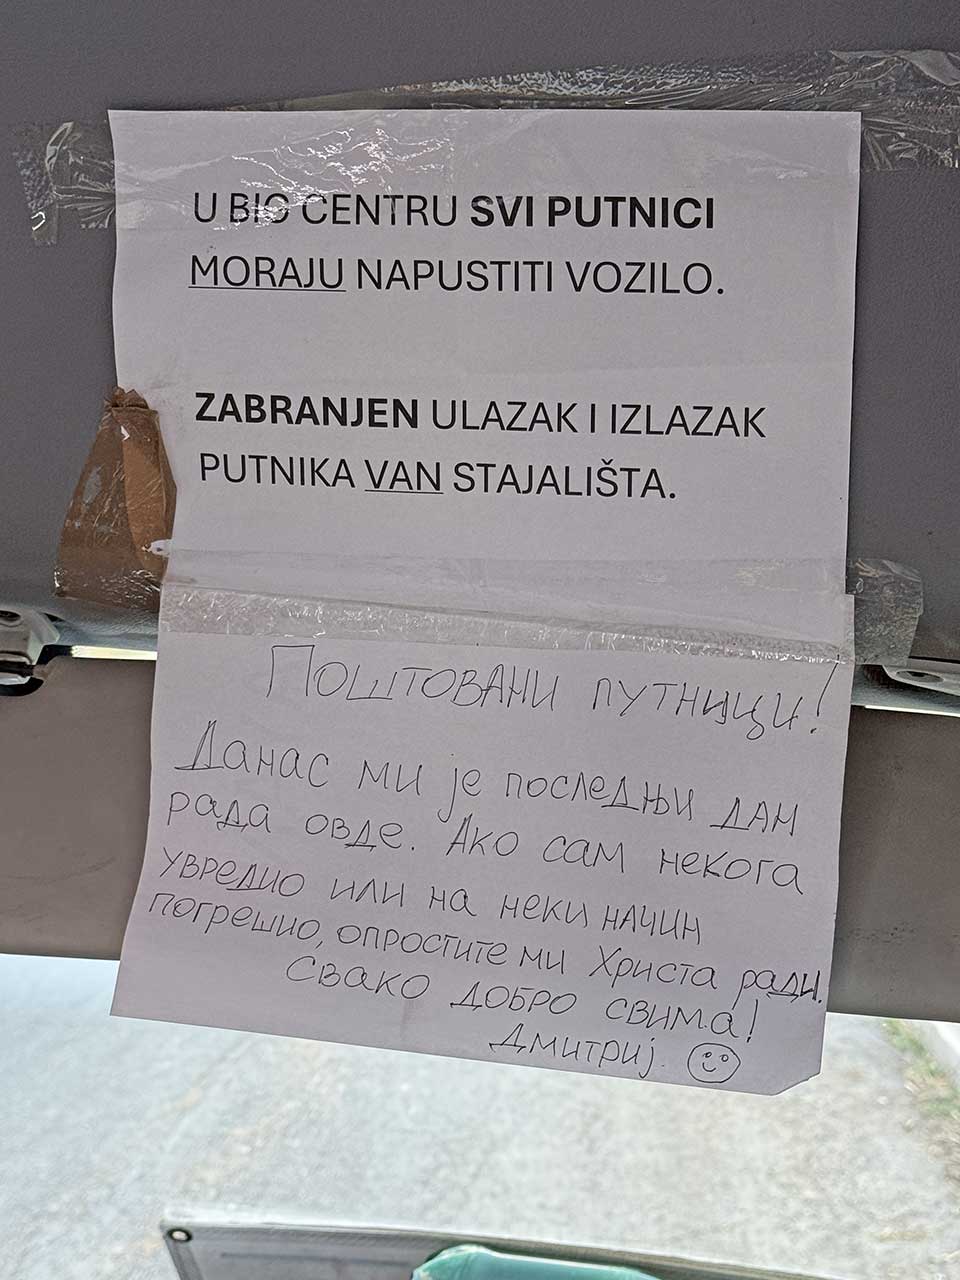 U BIG CENTRU SVI PUTNICI
MORAJU NAPUSTITI VOZILO.
ZABRANJEN ULAZAK I IZLAZAK
PUTNIKA VAN STAJALIŠTA.
Поштовани путници!
Данас ми је последњи дан
рада овде. Ако сам некога
увредио или на неки начин
погрешио, опростите ми Христа ради.
Свако добро свима!
Дмитриј.